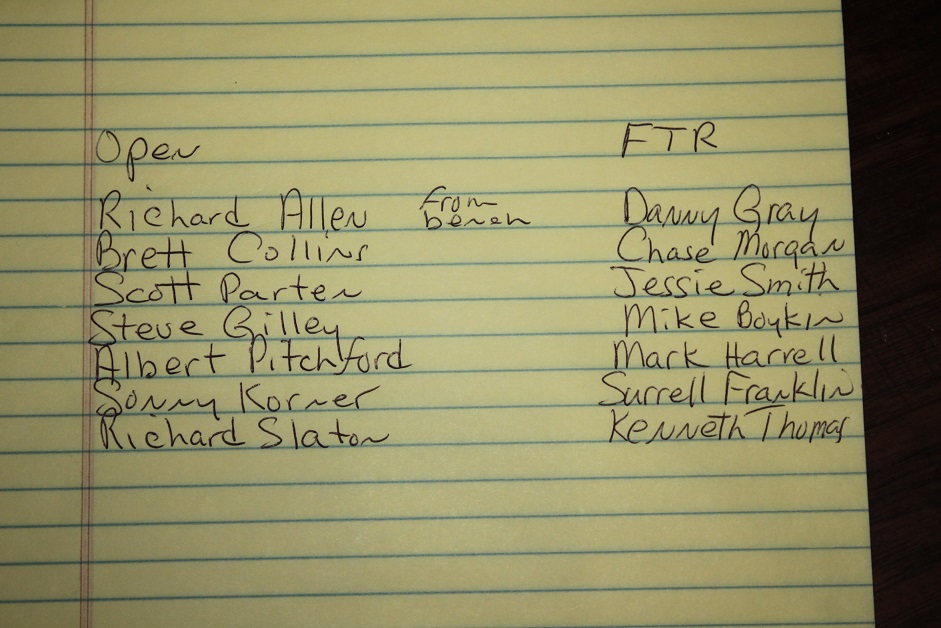 Open FTR
Richard Allen from bench Danny Gray
Brett Collins Chase Morgan
Scott Parten Jessie Smith
Steve Gilley Mike Boykin
Albert Pitchford Mark Harrell
Sonny Korner Surrell Franklin
Richard Slaton Kenneth Thomas